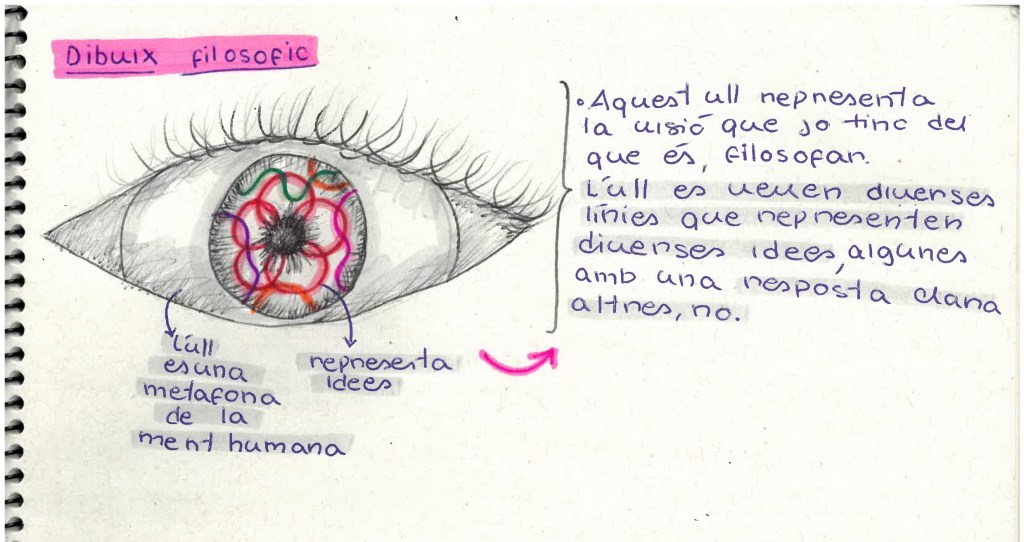 Dibuix filosofic
• Aquest ull representa
la visió que jo tinc del
que és, filosofar.
L'ull es veuen diverses
línies que representen
diverses idees, algunes
amb una resposta clara
altres, no.
L'ull
es una
metafora
de la
ment humana
representa
idees